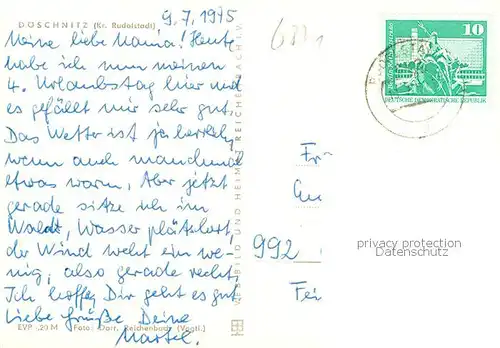 DÖSCHNITZ (Kr. Rudolstadt)
9.7.1975
Meine liebe Mama! Heute
habe ich nun meinen
4. Urlaubstag hier und
es gefällt mir sehr gut.
Das Wetter ist ja herrlich,
wenn auch manchmal
etwas warm, Aber jetzt
gerade sitze ich im
Wald, Wasser plätschert,
der Wind weht ein we-
nig, also gerade recht,
Ich hoffe, Dir geht es gut
Liebe Grüße Deine
EVP -,20 M Foto: Darr, Reichenbach (Vogtl.)
BILD UND HEIMAT REICHENBACH I. V.
10
DEUTSCHE DEMOKRATISCHE REPUBLIK
Fr
992
privacy protection
Datenschutz
Fei